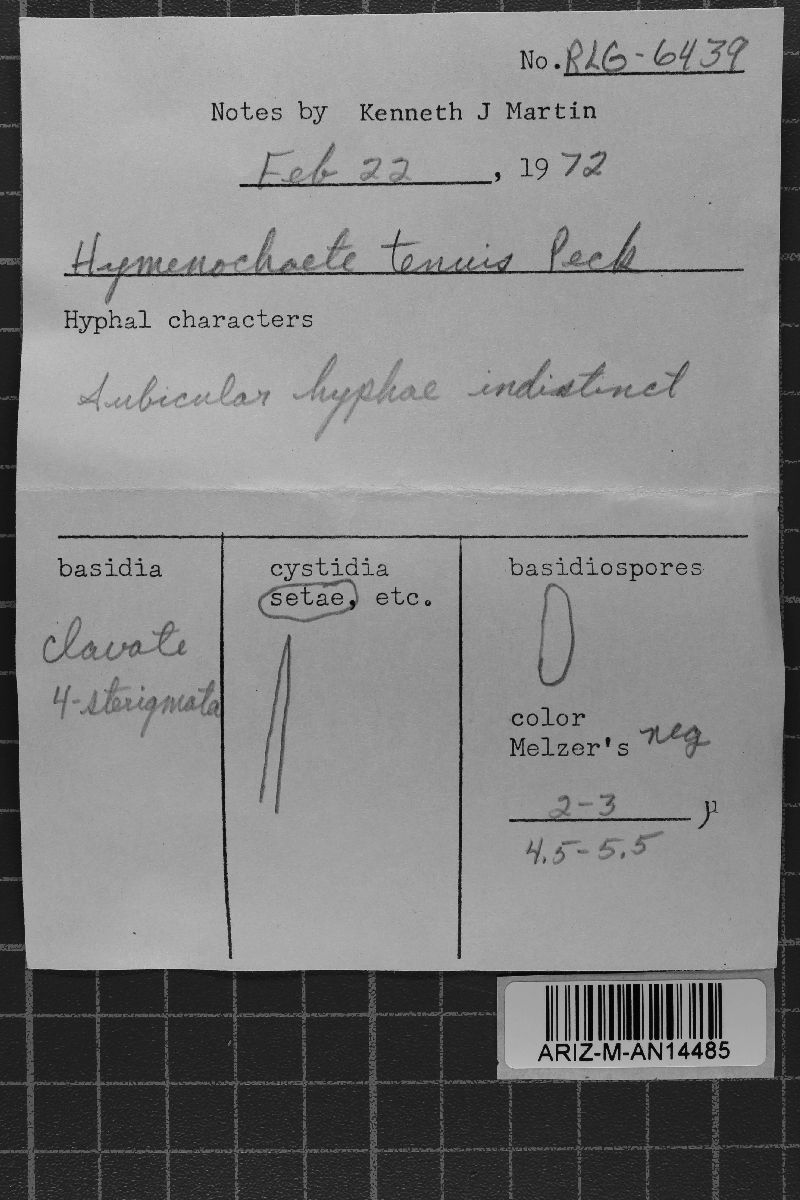 No. RLG-6439
Notes by Kenneth J Martin
Feb 22, 1972
Hymenochaete tenuis Peck
Hyphal characters
Subicular hyphae indistinct
basidia
clavate
4-sterigmata
cystidia
setae, etc.
basidiospores
color
Melzer's neg
2-3 µ
4.5-5.5
ARIZ-M-AN14485